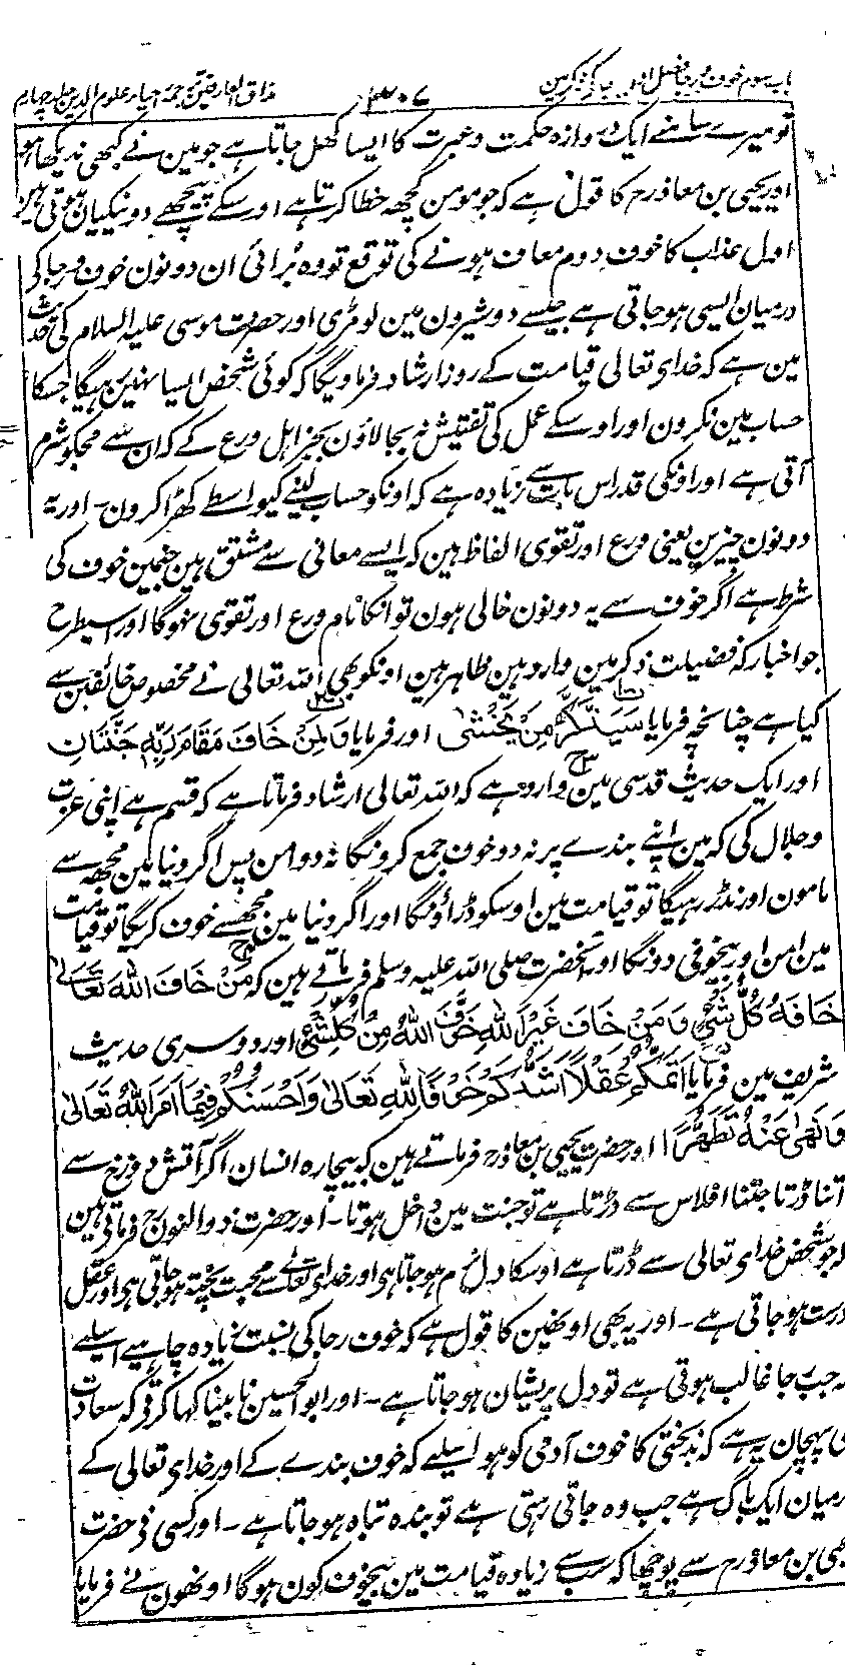 باب سوم خوف و رجا فصل دوم خوف کے ذکر مین
۳۰۷
مذاق العارفین ترجمۂ احیاء علوم الدین جلد چہارم
تو میرے سامنے ایک دروازہ حکمت و عبرت کا ایسا کھل جاتا ہے جو مین نے کبھی ندیکھا ہو
اور یحیی بن معاذرح کا قول ہے کہ جو مومن کچھہ خطا کرتا ہے اوسکے پیچھے دو نیکیان ہوتی ہین
اول عذاب کا خوف دوم معاف ہونے کی توقع تو وہ برائی ان دونون خوف و رجا کی
درمیان ایسی ہو جاتی ہے جیسے دو شیرون مین لومڑی اور حضرت موسی علیہ السلام کی حدیث
مین ہے کہ خدای تعالی قیامت کے روز ارشاد فرماویگا کہ کوئی شخص ایسا نہین رہیگا جسکا
حساب مین نکرون اور اوسکے عمل کی تفتیش نہ بجالاؤن بجز اہل ورع کے کہ ان سے مجکو شرم
آتی ہے اور اونکی قدر اس بات سے زیادہ ہے کہ اونکو حساب لینے کیواسطے کھڑا کرون۔ اور یہ
دونون چیزین یعنی ورع اور تقوی الفاظ ہین کہ ایسے معانی سے مشتق ہین جنمین خوف کی
شرط ہے اگر خوف سے یہ دونون خالی ہون تو انکا نام ورع اور تقوی نہوگا اور اسیطرح
جو اخبار کہ فضیلت ذکر مین وارد ہین ظاہر ہین اونکو بھی اللہ تعالی نے مخصوص خائفین سے
کیا ہے چنانچہ فرمایا سَیَذَّکَّرُ مَنْ یَّخْشٰی اور فرمایا وَلِمَنْ خَافَ مَقَامَ رَبِّہٖ جَنَّتَانِ
اور ایک حدیث قدسی مین وارد ہے کہ اللہ تعالی ارشاد فرماتا ہے کہ قسم ہے اپنی عزت
و جلال کی کہ مین اپنے بندے پر نہ دو خوف جمع کرونگا نہ دو امن پس اگر دنیا مین مجھہ سے
مامون اور نڈر رہیگا تو قیامت مین اوسکو ڈراؤنگا اور اگر دنیا مین مجھسے خوف کریگا تو قیامت
مین امن اور بیخوفی دونگا اور آنحضرت صلی اللہ علیہ وسلم فرماتے ہین کہ مَنْ خَافَ اللہَ تَعَالٰی
خَافَہُ کُلُّ شَیْءٍ وَمَنْ خَافَ غَیْرَ اللہِ خَوَّفَہُ اللہُ مِنْ کُلِّ شَیْءٍ اور دوسری حدیث
شریف مین فرمایا اَتَمُّکُمْ عَقْلًا اَشَدُّکُمْ خَوْفًا لِلہِ تَعَالٰی وَاَحْسَنُکُمْ فِیْمَا اَمَرَ اللہُ تَعَالٰی
وَنَھٰی عَنْہُ نَظَرًا اور حضرت یحیی بن معاذرح فرماتے ہین کہ بیچارہ انسان اگر آتش دوزخ سے
اتنا ڈرتا جتنا افلاس سے ڈرتا ہے تو جنت مین داخل ہوتا۔ اور حضرت ذوالنون رح فرماتے ہین
کہ جو شخص خدای تعالی سے ڈرتا ہے اوسکا دل نرم ہو جاتا ہی اور خدای تعالی سے محبت پختہ ہو جاتی ہی اور عقل
درست ہو جاتی ہے۔ اور یہ بھی اونھین کا قول ہے کہ خوف رجا کی نسبت زیادہ چاہیے اسلیے
کہ جب رجا غالب ہوتی ہے تو دل پریشان ہو جاتا ہے۔ اور ابوالحسین نابینا کہا کرتے کہ سعادت
کی پہچان یہ ہے کہ بدبختی کا خوف آدمی کو ہو اسلیے کہ خوف بندے کے اور خدای تعالی کے
درمیان ایک باگ ہے جب وہ جاتی رہتی ہے تو بندہ تباہ ہو جاتا ہے۔ اور کسی نے حضرت
یحیی بن معاذرح سے پوچھا کہ سب سے زیادہ قیامت مین بیخوف کون ہوگا اونھون نے فرمایا